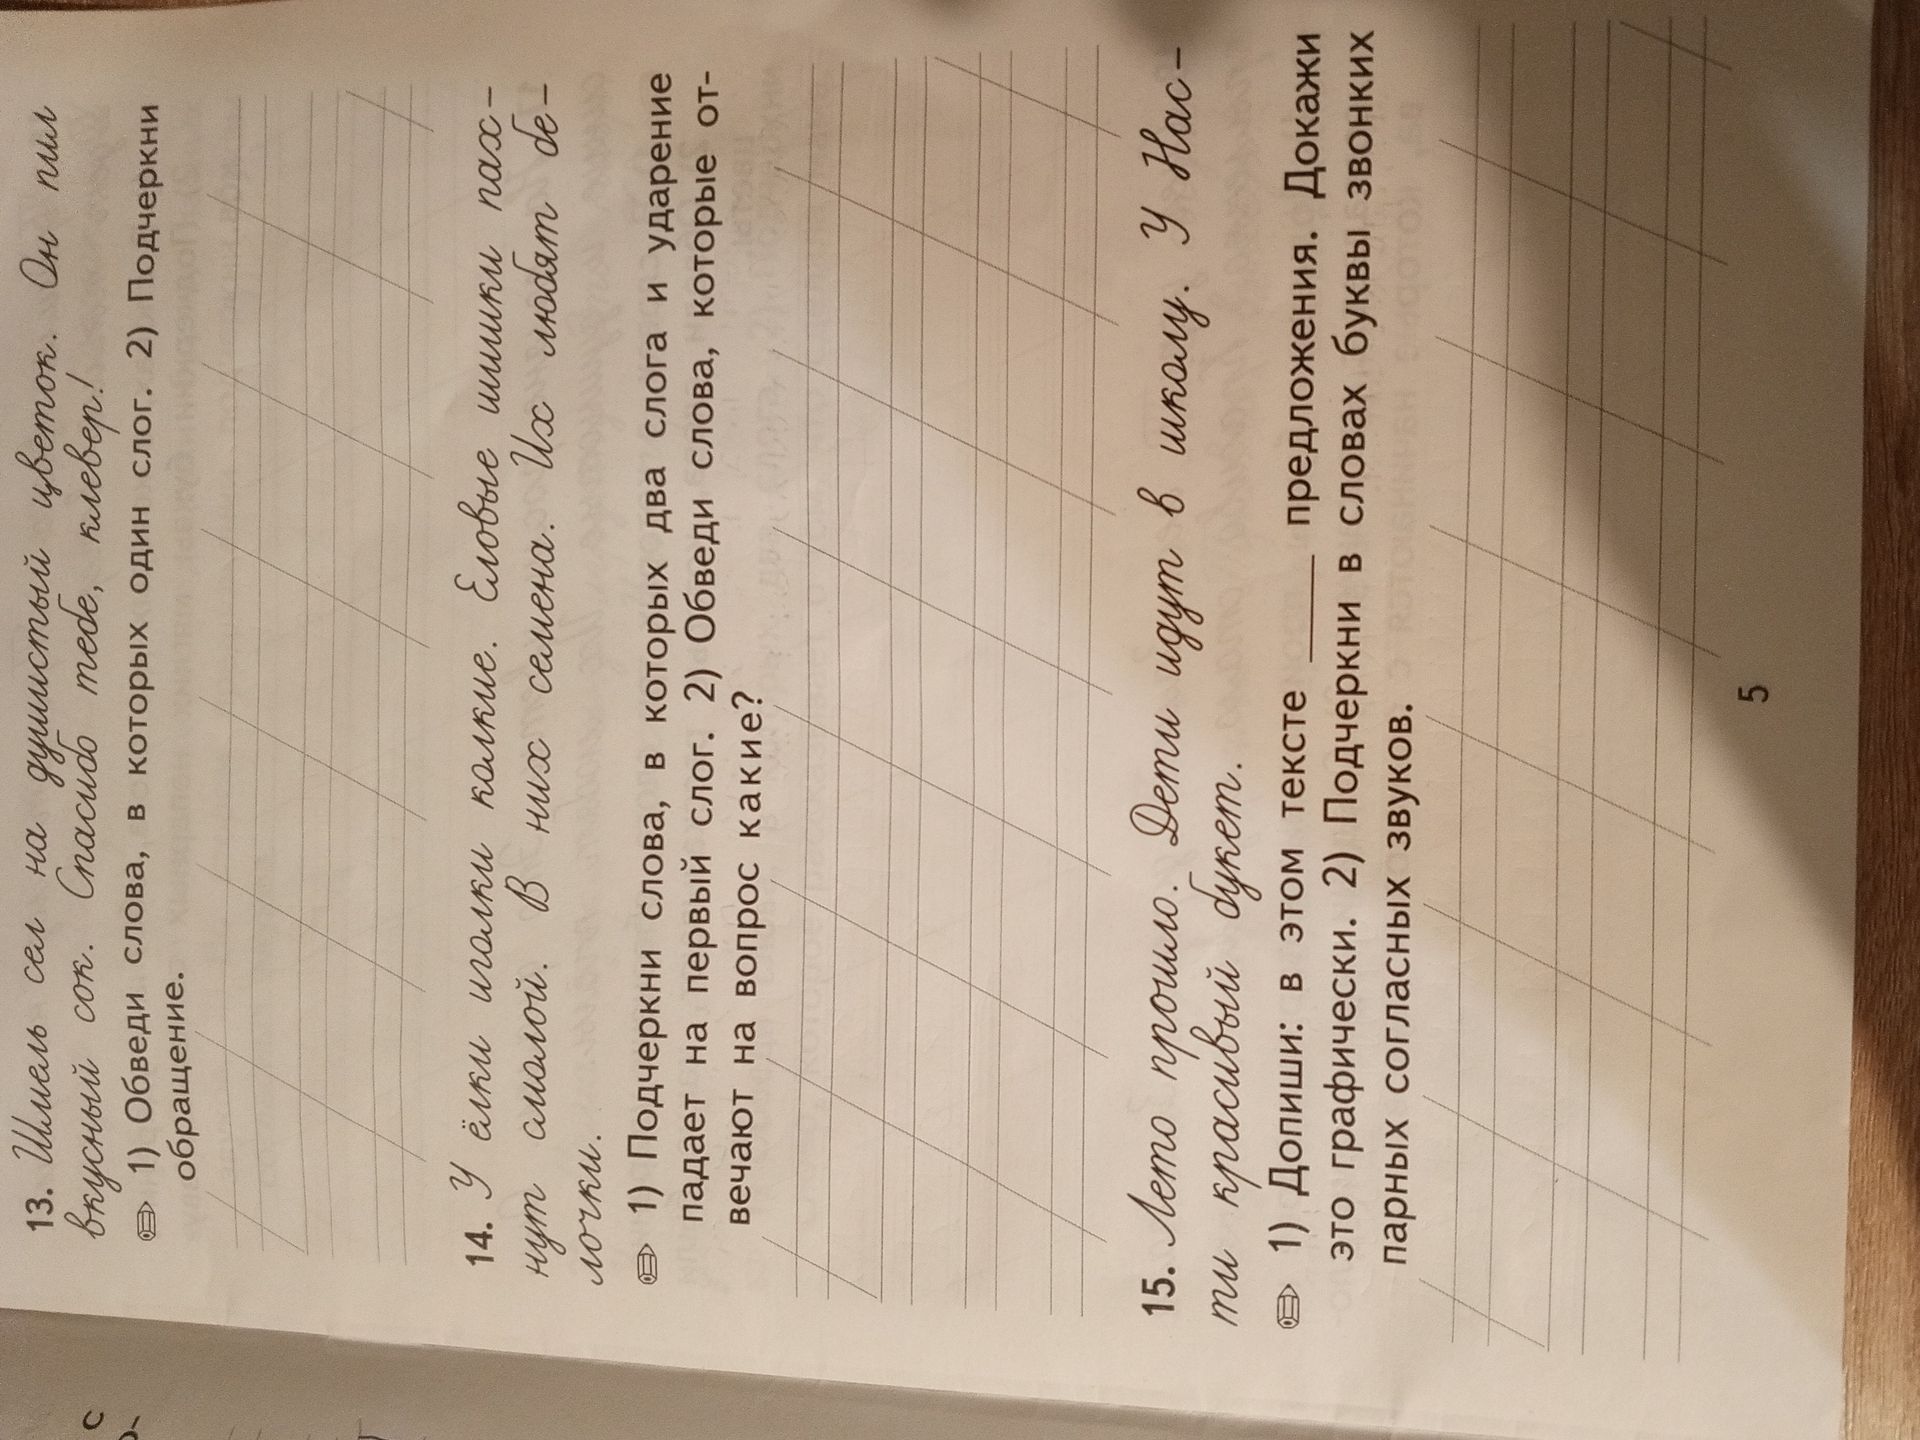 13. Шмель сел на душистый цветок. Он пил
вкусный сок. Спасибо тебе, клевер!
1) Обведи слова, в которых один слог. 2) Подчеркни
обращение.
14. У ёлки иголки колкие. Еловые шишки пах-
нут смолой. В них семена. Их любят бе-
лочки.
1) Подчеркни слова, в которых два слога и ударение
падает на первый слог. 2) Обведи слова, которые от-
вечают на вопрос какие?
15. Лето прошло. Дети идут в школу. У Нас-
ти красивый букет.
1) Допиши: в этом тексте ____ предложения. Докажи
это графически. 2) Подчеркни в словах буквы звонких
парных согласных звуков.
5
с